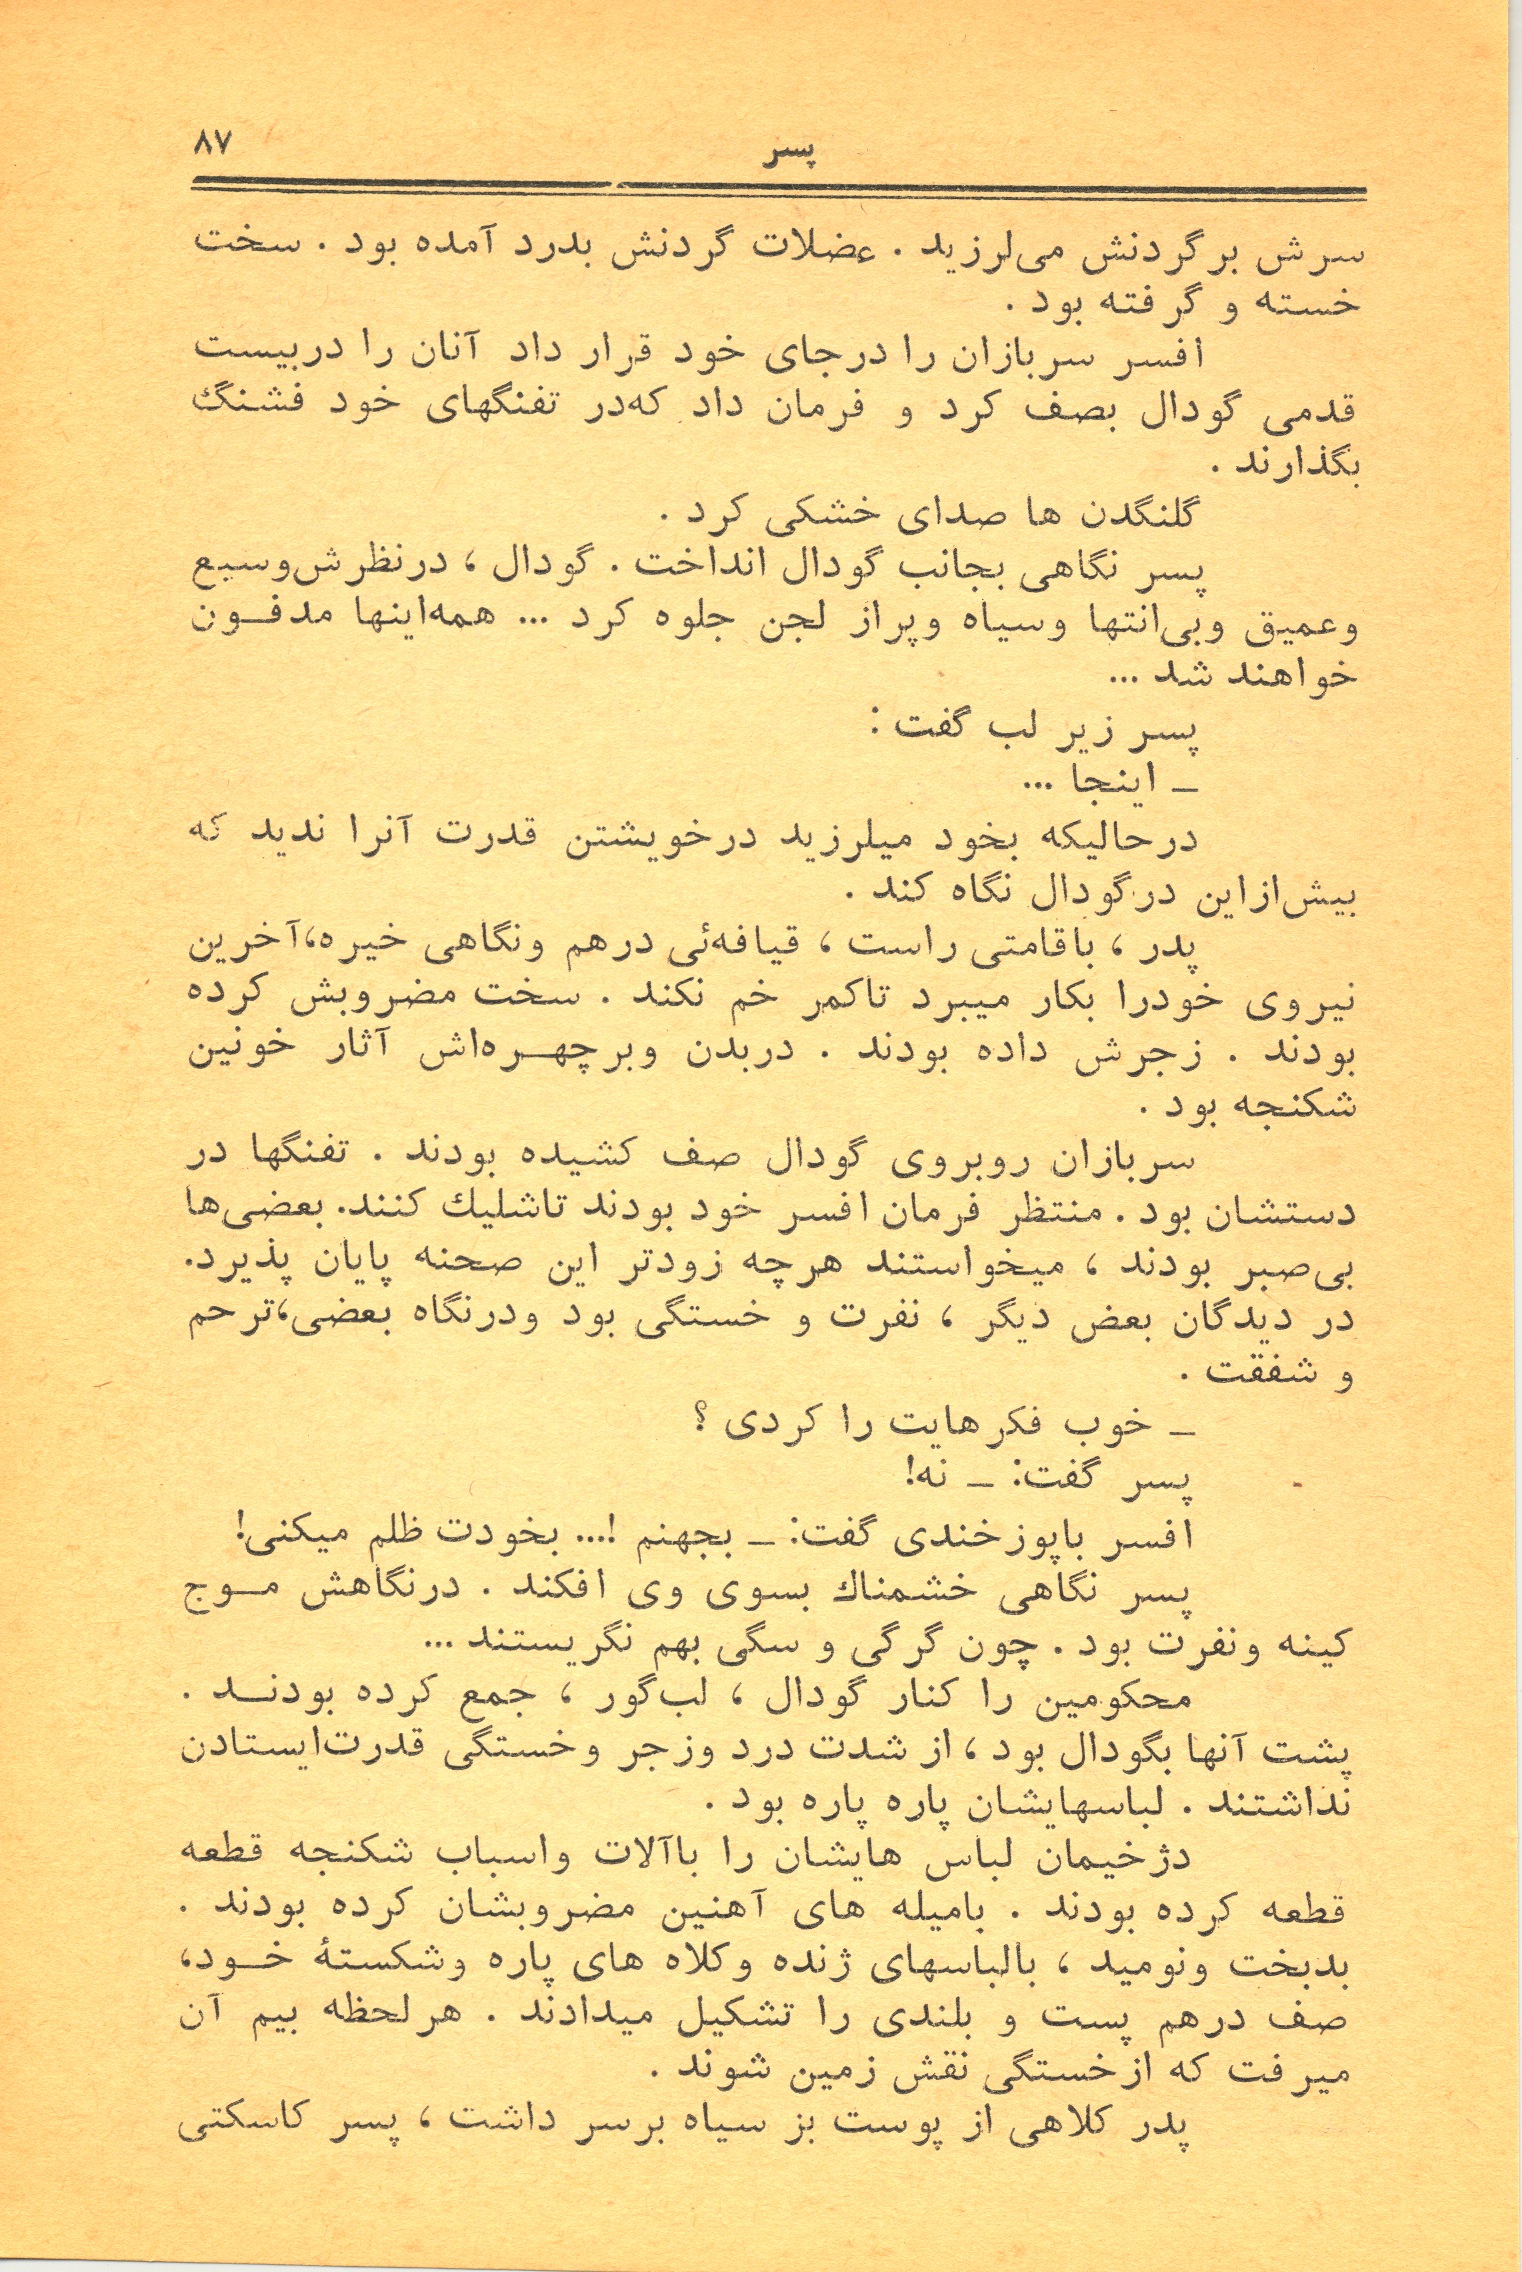 پسر
۸۷
سرش بر گردنش می‌لرزید . عضلات گردنش بدرد آمده بود . سخت
خسته و گرفته بود .
افسر سربازان را درجای خود قرار داد آنان را دربیست
قدمی گودال بصف کرد و فرمان داد که‌در تفنگهای خود فشنگ
بگذارند .
گلنگدن ها صدای خشکی کرد .
پسر نگاهی بجانب گودال انداخت . گودال ، درنظرش‌وسیع
وعمیق وبی‌انتها وسیاه وپراز لجن جلوه کرد ... همه‌اینها مدفـون
خواهند شد ...
پسر زیر لب گفت :
ـ اینجا ...
درحالیکه بخود میلرزید درخویشتن قدرت آنرا ندید که
بیش‌ازاین درگودال نگاه کند .
پدر ، باقامتی راست ، قیافه‌ئی درهم ونگاهی خیره،آخرین
نیروی خودرا بکار میبرد تاکمر خم نکند . سخت مضروبش کرده
بودند . زجرش داده بودند . دربدن وبرچهـره‌اش آثار خونین
شکنجه بود .
سربازان روبروی گودال صف کشیده بودند . تفنگها در
دستشان بود . منتظر فرمان افسر خود بودند تاشلیك کنند. بعضی‌ها
بی‌صبر بودند ، میخواستند هرچه زودتر این صحنه پایان پذیرد.
در دیدگان بعض دیگر ، نفرت و خستگی بود ودرنگاه بعضی،ترحم
و شفقت .
ـ خوب فکرهایت را کردی ؟
پسر گفت: ـ نه!
افسر باپوزخندی گفت: ـ بجهنم !... بخودت ظلم میکنی!
پسر نگاهی خشمناك بسوی وی افکند . درنگاهش مـوج
کینه ونفرت بود . چون گرگی و سگی بهم نگریستند ...
محکومین را کنار گودال ، لب‌گور ، جمع کرده بودنـد .
پشت آنها بگودال بود ، از شدت درد وزجر وخستگی قدرت‌ایستادن
نداشتند . لباسهایشان پاره پاره بود .
دژخیمان لباس هایشان را باآلات واسباب شکنجه قطعه
قطعه کرده بودند . بامیله های آهنین مضروبشان کرده بودند .
بدبخت ونومید ، بالباسهای ژنده وکلاه های پاره وشکستهٔ خـود،
صف درهم پست و بلندی را تشکیل میدادند . هرلحظه بیم آن
میرفت که ازخستگی نقش زمین شوند .
پدر کلاهی از پوست بز سیاه برسر داشت ، پسر کاسکتی